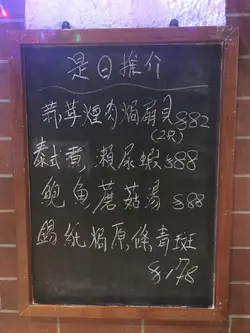 是日推介
蒜茸煙肉焗扇貝$82
(2隻)
泰式煮瀨尿蝦$88
鮑魚蘑菇湯$88
錫紙焗原條青斑
$178